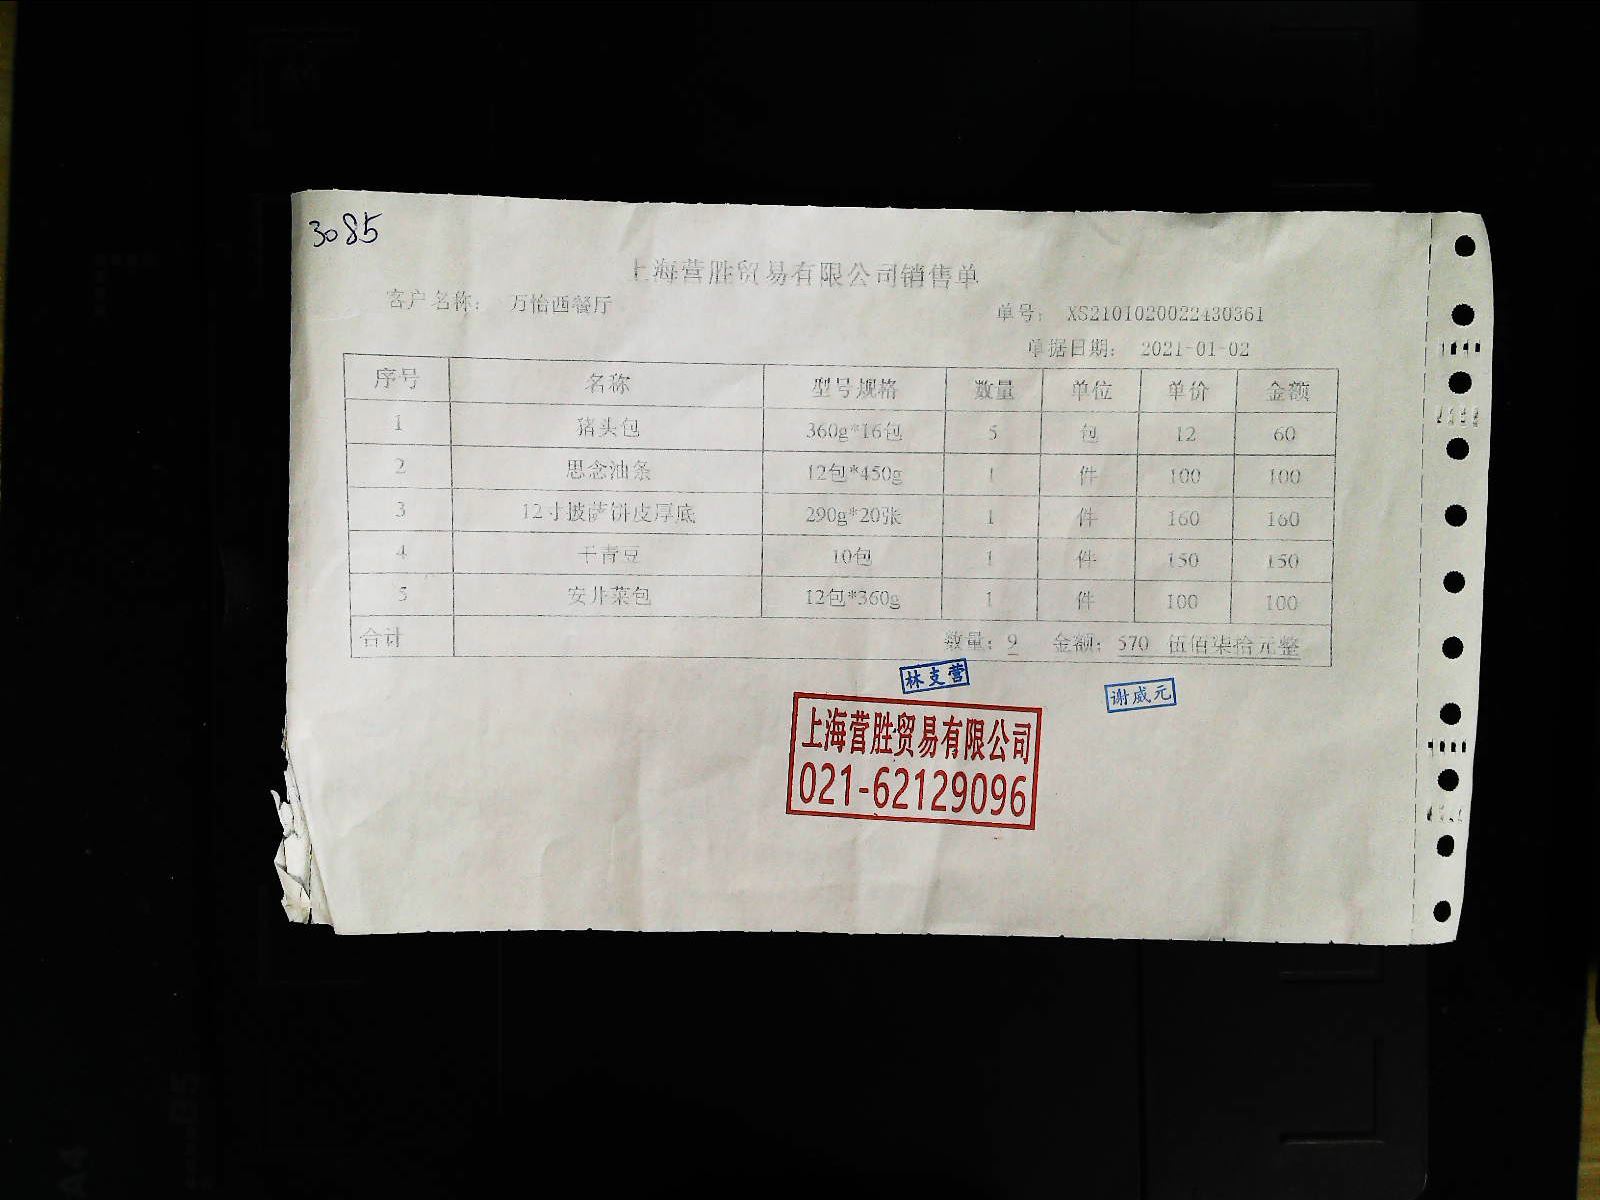 3085
上海营胜贸易有限公司销售单
客户名称： 万怡西餐厅 单号： XS2101020022430361
单据日期： 2021-01-02
序号 名称 型号规格 数量 单位 单价 金额
1 猪头包 360g*16包 5 包 12 60
2 思念油条 12包*450g 1 件 100 100
3 12寸披萨饼皮厚底 290g*20张 1 件 160 160
4 干青豆 10包 1 件 150 150
5 安井菜包 12包*360g 1 件 100 100
合计 数量：9 金额：570 伍佰柒拾元整
林支营
谢威元
上海营胜贸易有限公司
021-62129096
A4